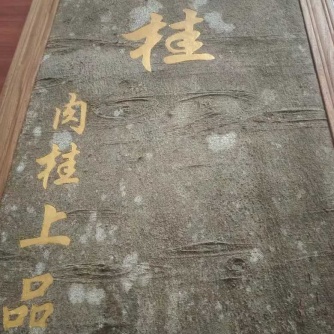 桂
肉桂上品